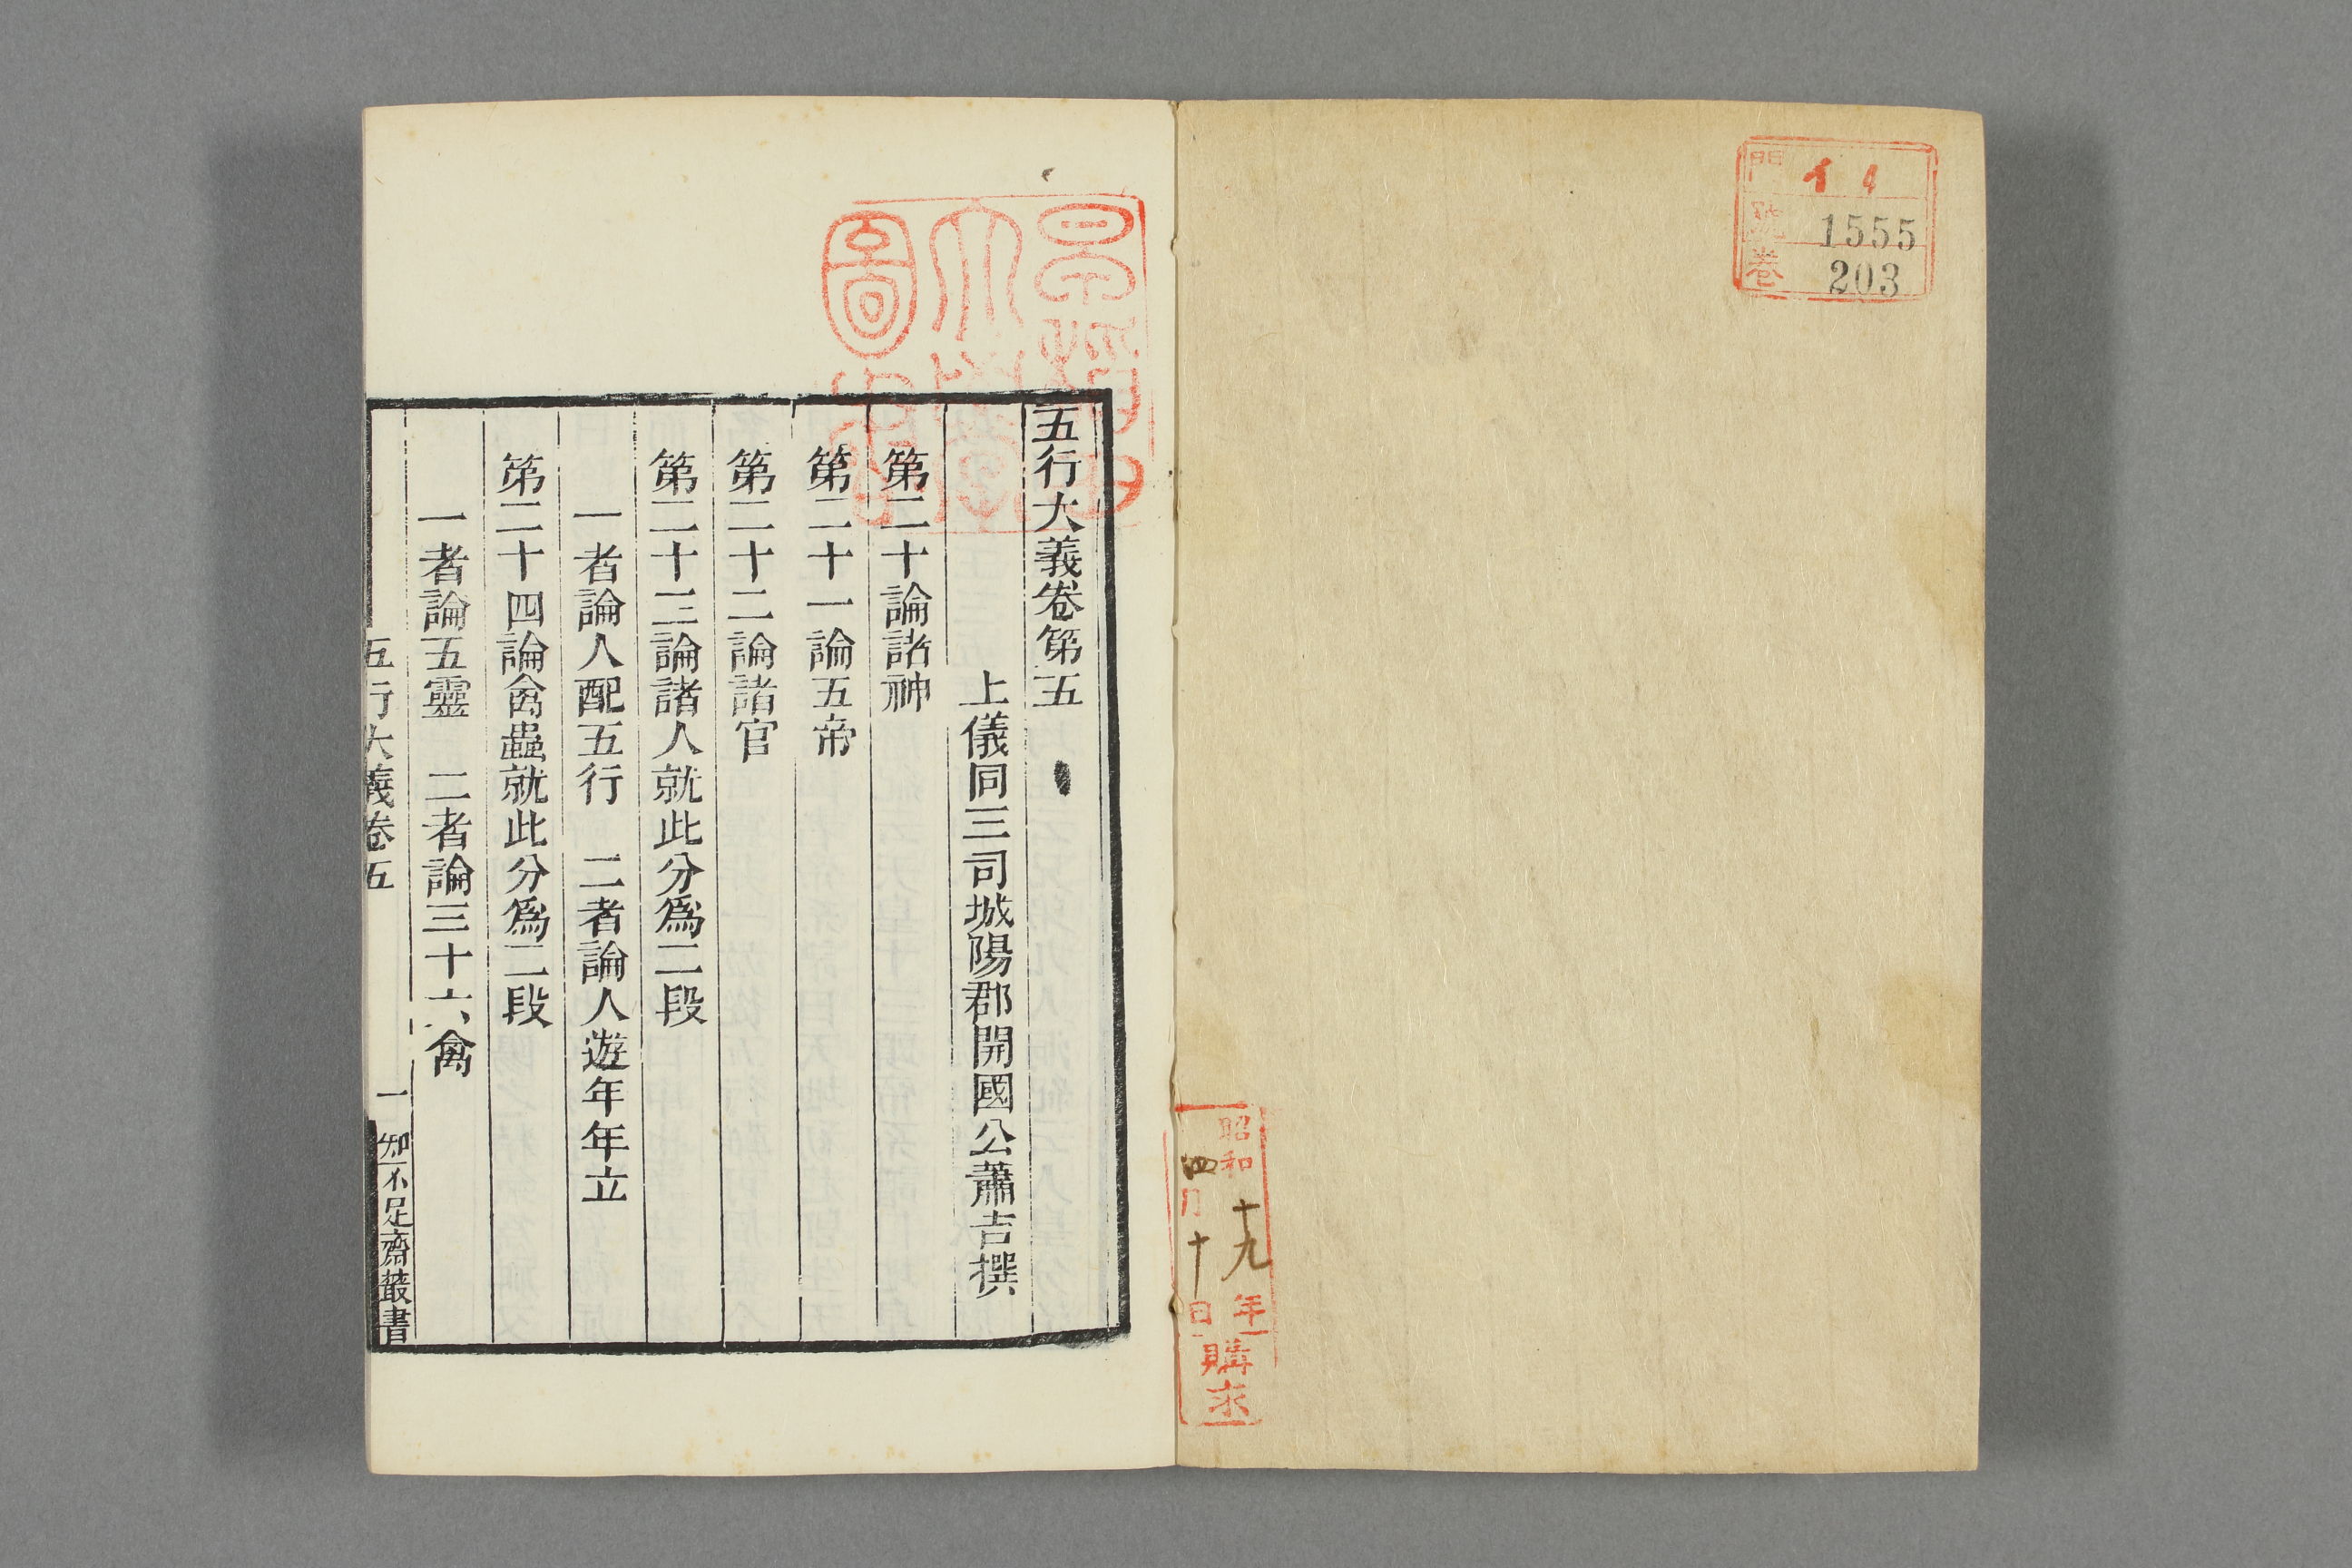 門 イ 4
號 1555
卷 203
昭和十九年
四月十日
購求
五行大義卷第五
上儀同三司城陽郡開國公蕭吉撰
第二十論諸神
第二十一論五帝
第二十二論諸官
第二十三論諸人就此分爲二段
一者論人配五行 二者論人遊年年立
第二十四論禽蟲就此分爲二段
一者論五靈 二者論三十六禽
五行大義卷五 一 知不足齋叢書